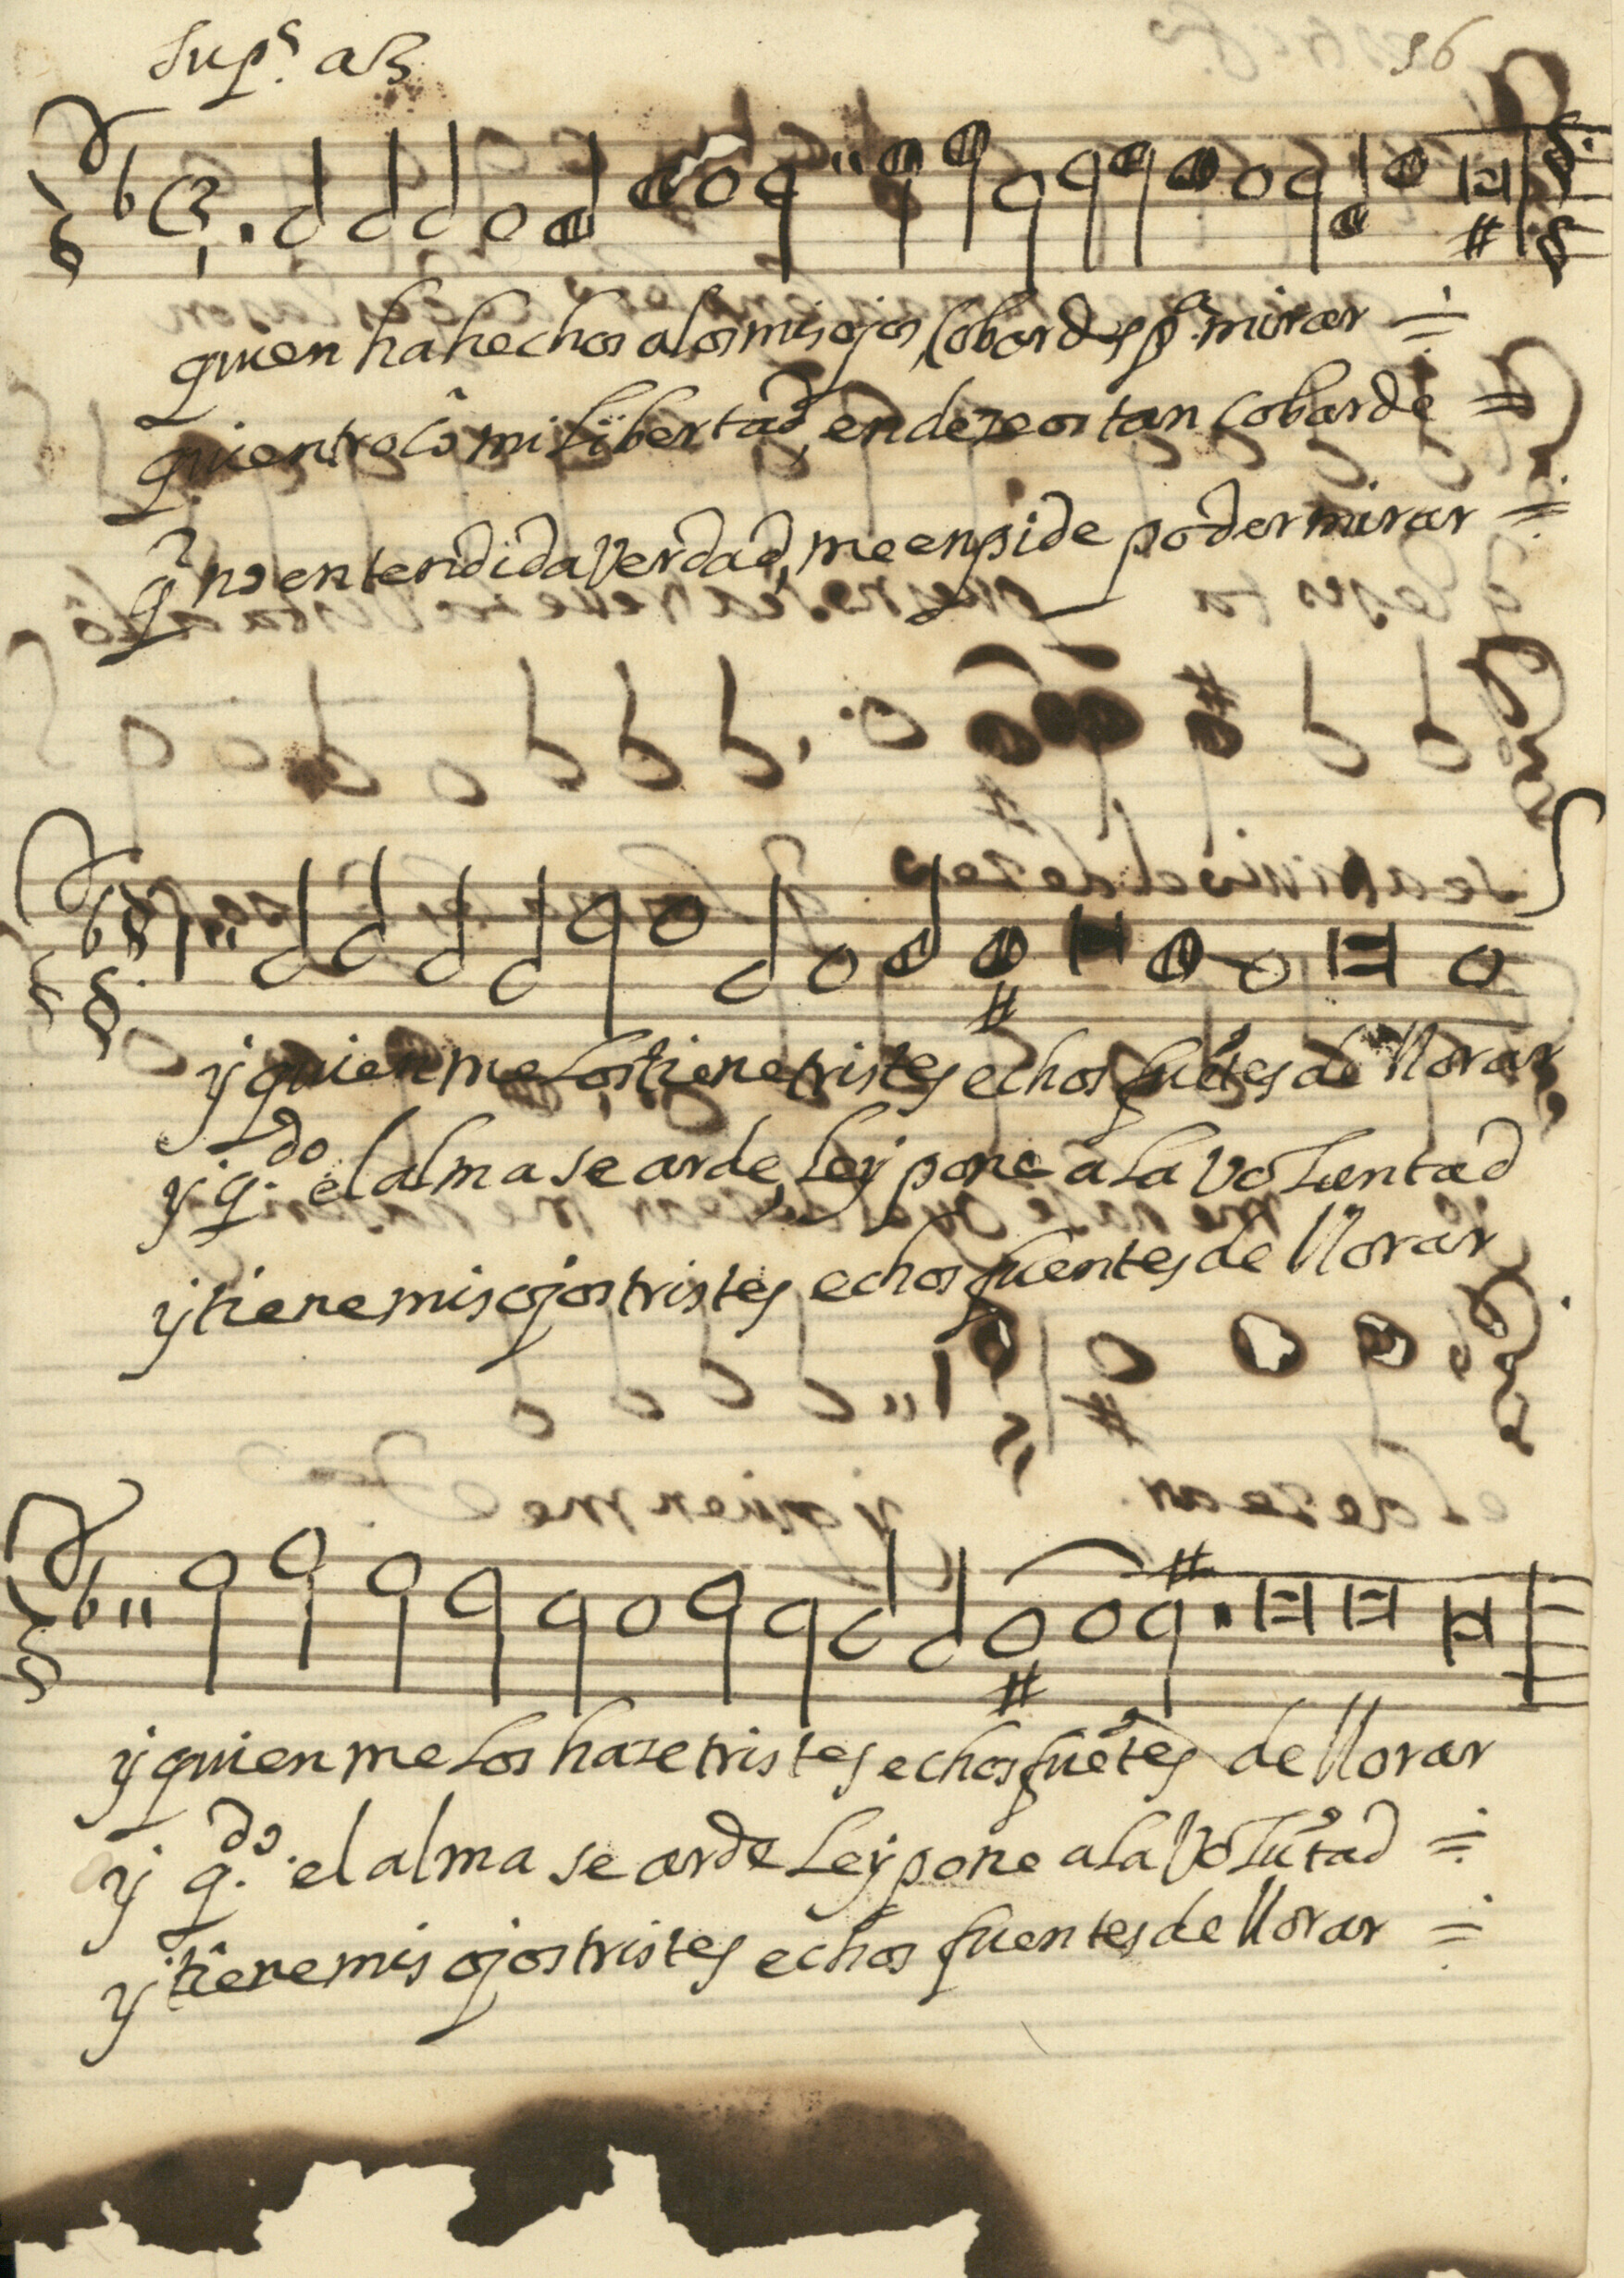 Supˢ. a 3.
36
quien ha hechos a los mis ojos cobardes pᵃ. mirar
quien troco mi libertad, en dezeos tan cobarde
qⁿ no entendida verdad, me enpide poder mirar
y quien me los tiene tristes echos fuẽtes de llorar
y q.ᵈᵒ el alma se arde, ley pone a la voluntad
y tiene mis ojos tristes echos fuentes de llorar
y quien me los haze tristes echos fuẽtes de llorar
y q.ᵈᵒ el alma se arde ley pone a la volũtad
y tiene mis ojos tristes echos fuentes de llorar